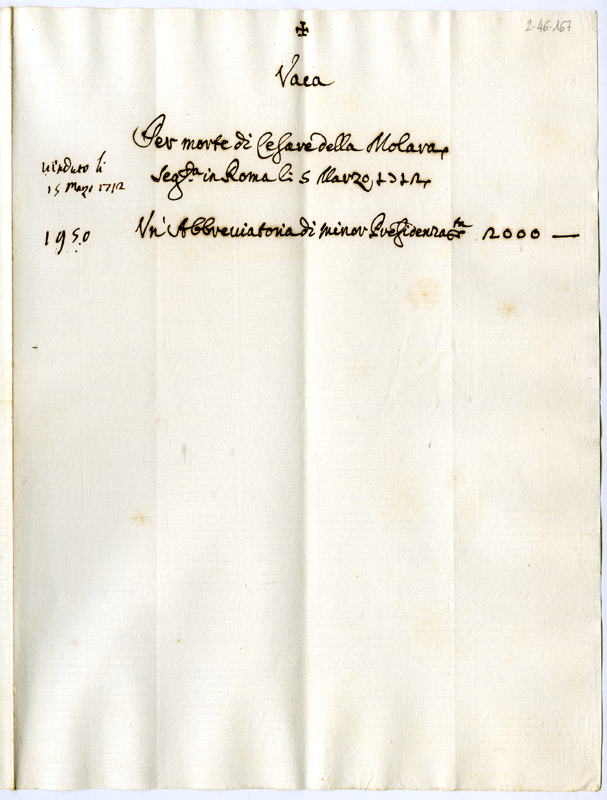 2-46-167
✠
Vaca
Per morte di Cesare della Molara,
Seg.ta in Roma li 5 Marzo 1712,
venduto li
15 Marzo 1712
1950 Un' Abbreviatoria di minor Presidenza 2000 —